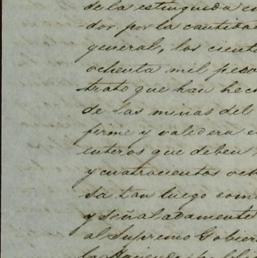 de la estinguida en
dor por la cantida
general, los ciento
ochenta mil peso
trato que han hech
de las minas del
firme y valedera e
enteros que deben
y cuatrocientos och
sa tan luego com
y señaladamente
al Supremo Gobier